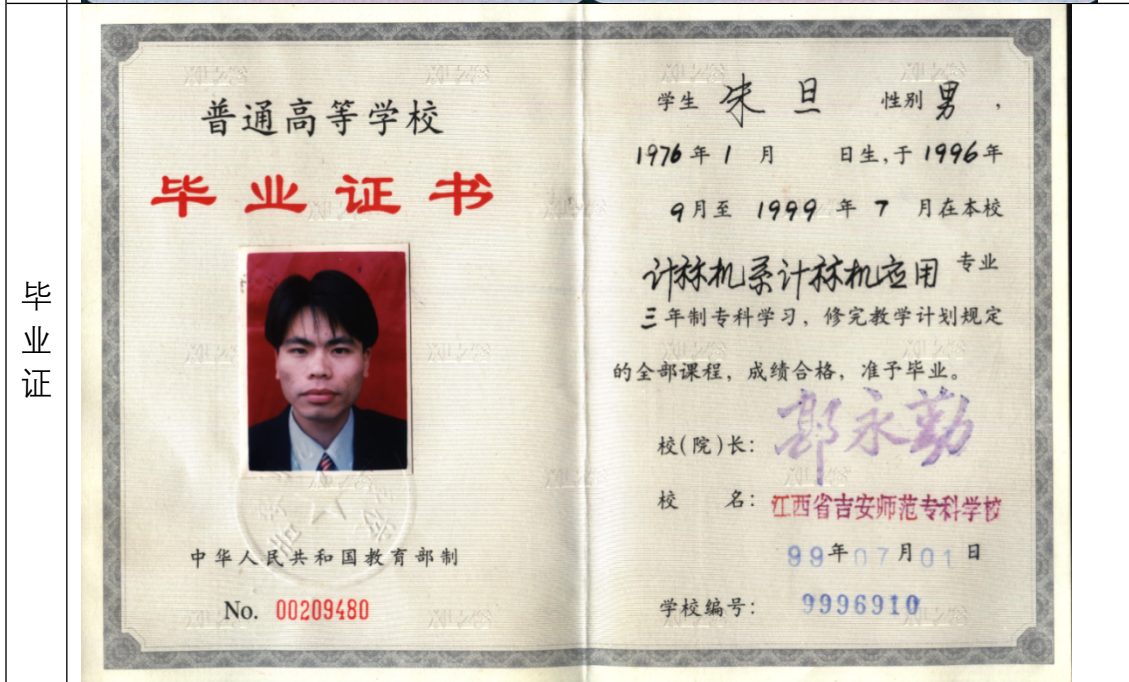 毕业证
普通高等学校
毕业证书
中华人民共和国教育部制
No. 00209480
学生 朱旦 性别 男，
1976年1月 日生,于1996年
9月至1999年7月在本校
计秝机系计秝机应用 专业
三年制专科学习，修完教学计划规定
的全部课程，成绩合格，准予毕业。
校(院)长：郭永勤
校 名：江西省吉安师范专科学校
99年07月01日
学校编号：9996910